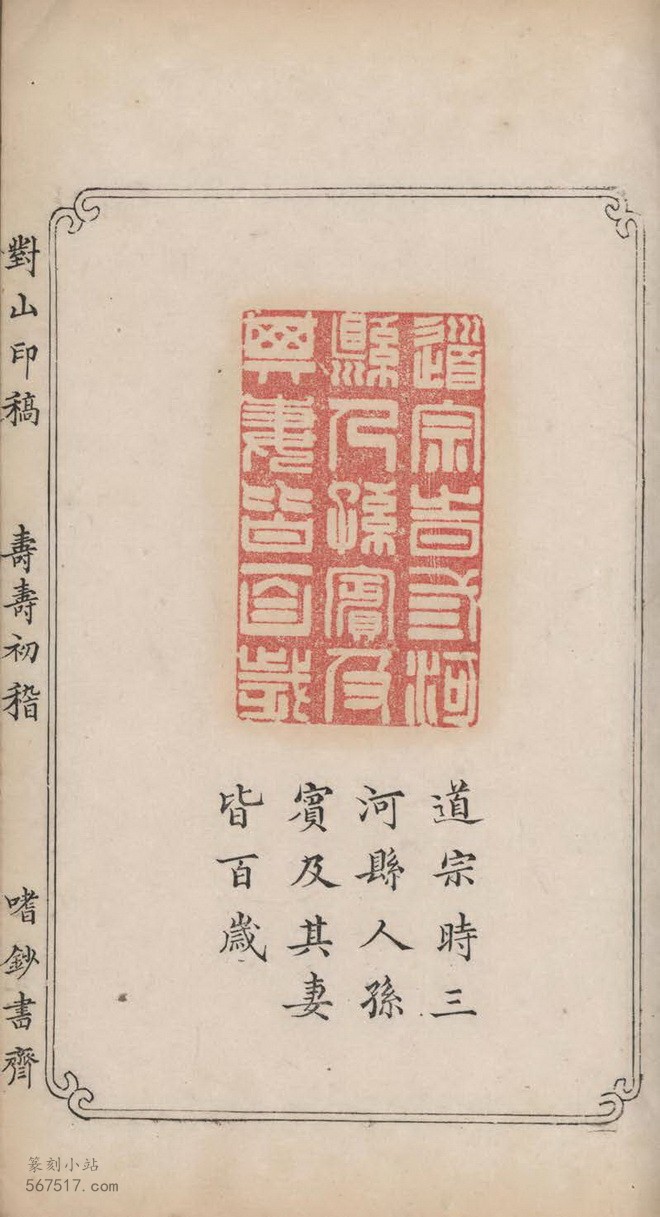 道宗時三河
縣人孫賓及
其妻皆百歲
道宗時三
河縣人孫
賓及其妻
皆百歲
對山印稿 壽壽初稽 嗜鈔書齋
篆刻小站
567517.com